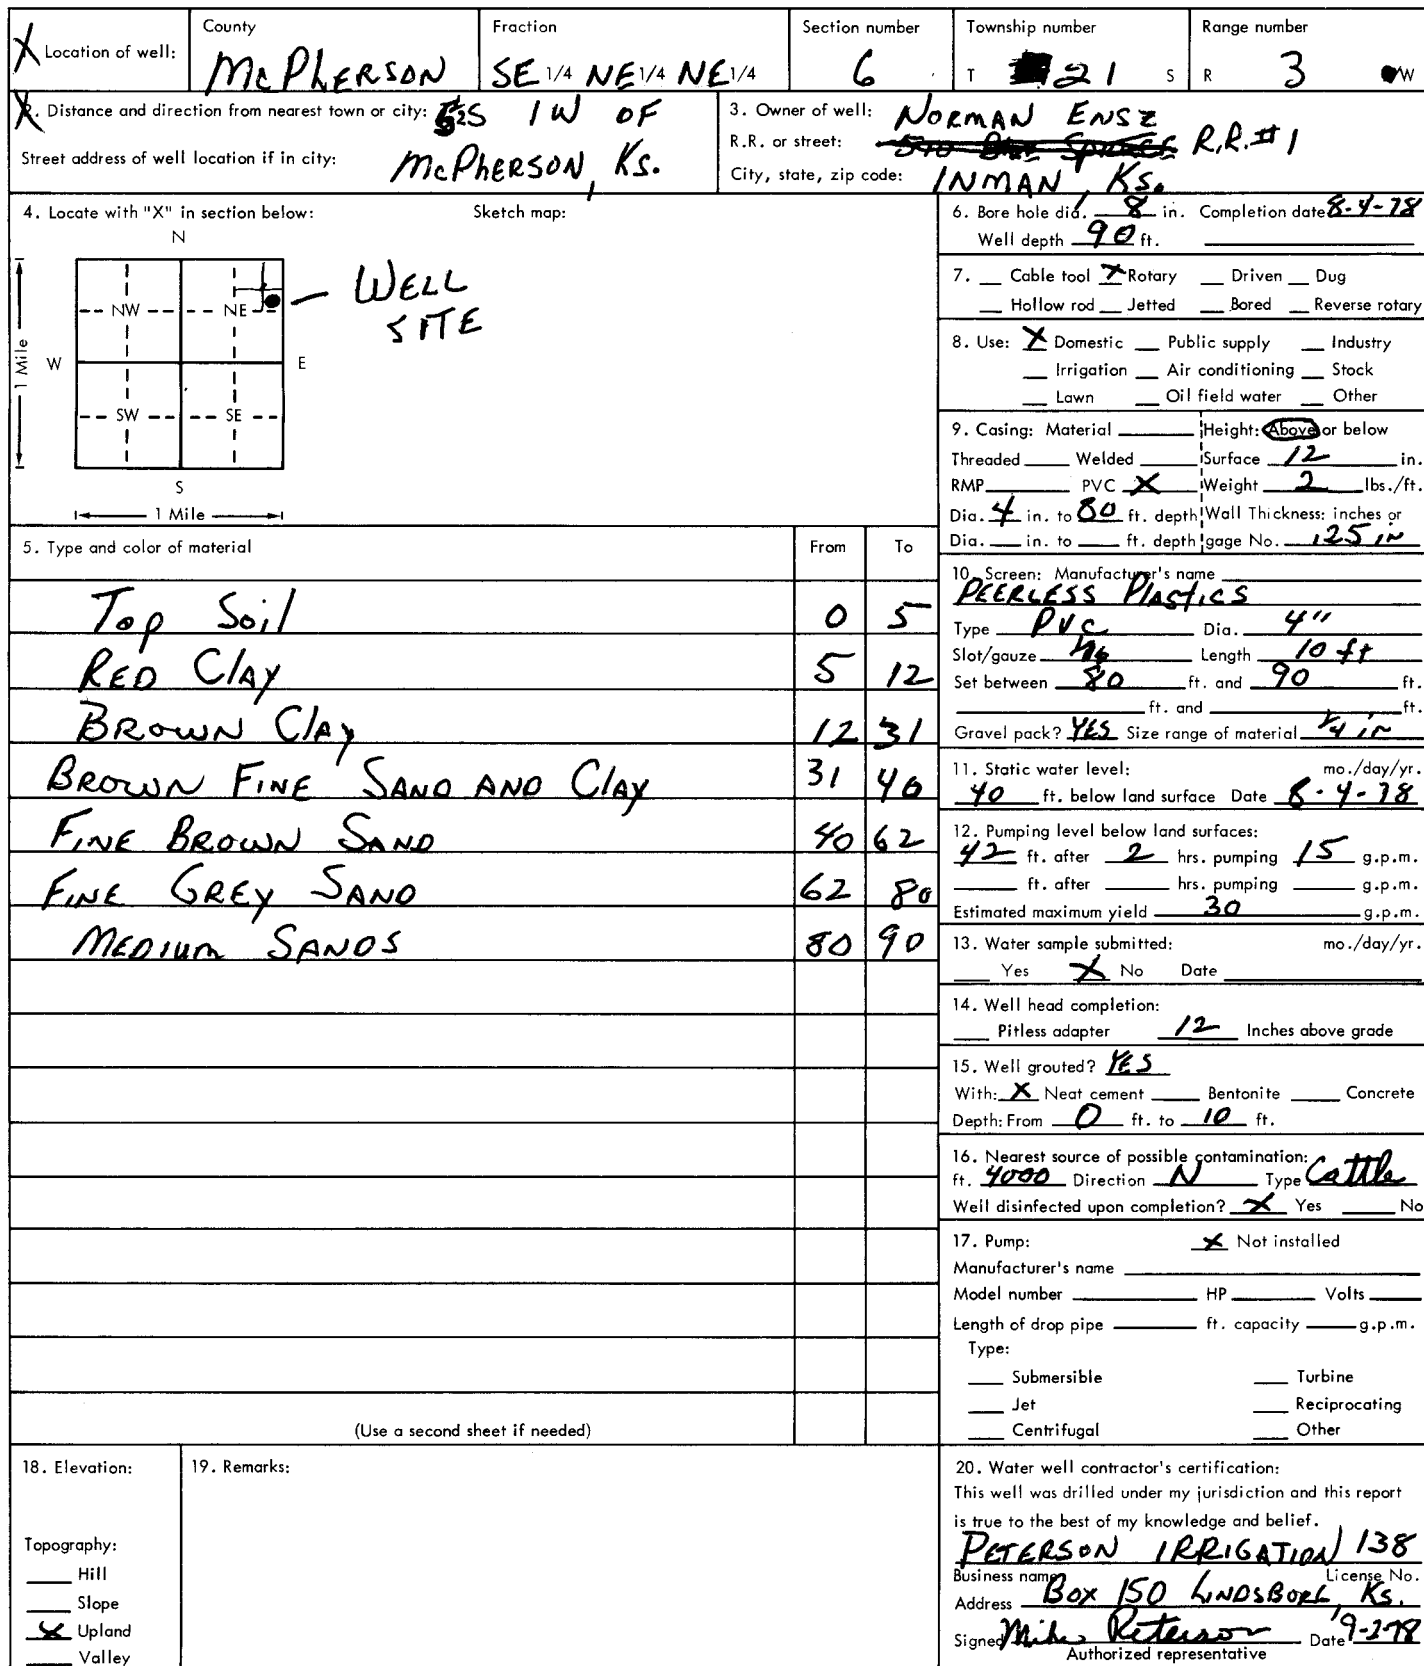 Location of well:
County
McPHERSON
Fraction
SE 1/4 NE 1/4 NE 1/4
Section number
6
Township number
T 21 S
Range number
R 3 W
2. Distance and direction from nearest town or city: 1W OF
Street address of well location if in city: McPHERSON, Ks.
3. Owner of well: NORMAN ENSZ
R.R. or street: R.R.#1
City, state, zip code: INMAN, Ks.
4. Locate with "X" in section below:
Sketch map:
N
NW NE
W E
SW SE
S
1 Mile
1 Mile
WELL
SITE
5. Type and color of material From To
Top Soil 0 5
RED Clay 5 12
BROWN Clay 12 31
BROWN FINE SAND AND Clay 31 40
FINE BROWN SAND 40 62
FINE GREY SAND 62 80
MEDIUM SANDS 80 90
(Use a second sheet if needed)
6. Bore hole dia. 8 in. Completion date 8-4-78
Well depth 90 ft.
7. Cable tool X Rotary Driven Dug
Hollow rod Jetted Bored Reverse rotary
8. Use: X Domestic Public supply Industry
Irrigation Air conditioning Stock
Lawn Oil field water Other
9. Casing: Material Height: Above or below
Threaded Welded Surface 12 in.
RMP PVC X Weight 2 lbs./ft.
Dia. 4 in. to 80 ft. depth Wall Thickness: inches or
Dia. in. to ft. depth gage No. .125 in
10. Screen: Manufacturer's name
PEERLESS PlAsticS
Type PVC Dia. 4"
Slot/gauze Length 10 ft
Set between 80 ft. and 90 ft.
ft. and ft.
Gravel pack? YES Size range of material 1/4 in
11. Static water level: mo./day/yr.
40 ft. below land surface Date 8-4-78
12. Pumping level below land surfaces:
42 ft. after 2 hrs. pumping 15 g.p.m.
ft. after hrs. pumping g.p.m.
Estimated maximum yield 30 g.p.m.
13. Water sample submitted: mo./day/yr.
Yes X No Date
14. Well head completion:
Pitless adapter 12 Inches above grade
15. Well grouted? YES
With: X Neat cement Bentonite Concrete
Depth: From 0 ft. to 10 ft.
16. Nearest source of possible contamination:
ft. 4000 Direction N Type Cattle
Well disinfected upon completion? X Yes No
17. Pump: X Not installed
Manufacturer's name
Model number HP Volts
Length of drop pipe ft. capacity g.p.m.
Type:
Submersible Turbine
Jet Reciprocating
Centrifugal Other
18. Elevation:
Topography:
Hill
Slope
X Upland
Valley
19. Remarks:
20. Water well contractor's certification:
This well was drilled under my jurisdiction and this report
is true to the best of my knowledge and belief.
PETERSON IRRIGATION 138
Business name License No.
Address Box 150 LINDSBORG, Ks.
Signed Mike Peterson Date 9-2-78
Authorized representative